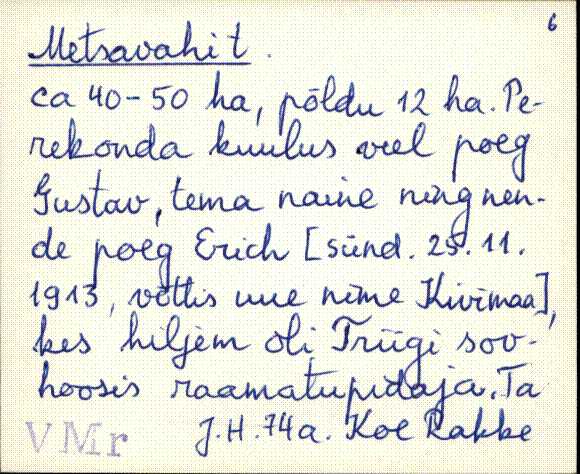 6
Metsavahi t.
ca 40-50 ha, põldu 12 ha. Pe-
rekonda kuulus veel poeg
Gustav, tema naine ning nen-
de poeg Erich [sünd. 25.11.
1913, võttis uue nime Kivimaa],
kes hiljem oli Triigi sov-
hoosis raamatupidaja. Ta
VMr J.H. 74a. Koe Rakke